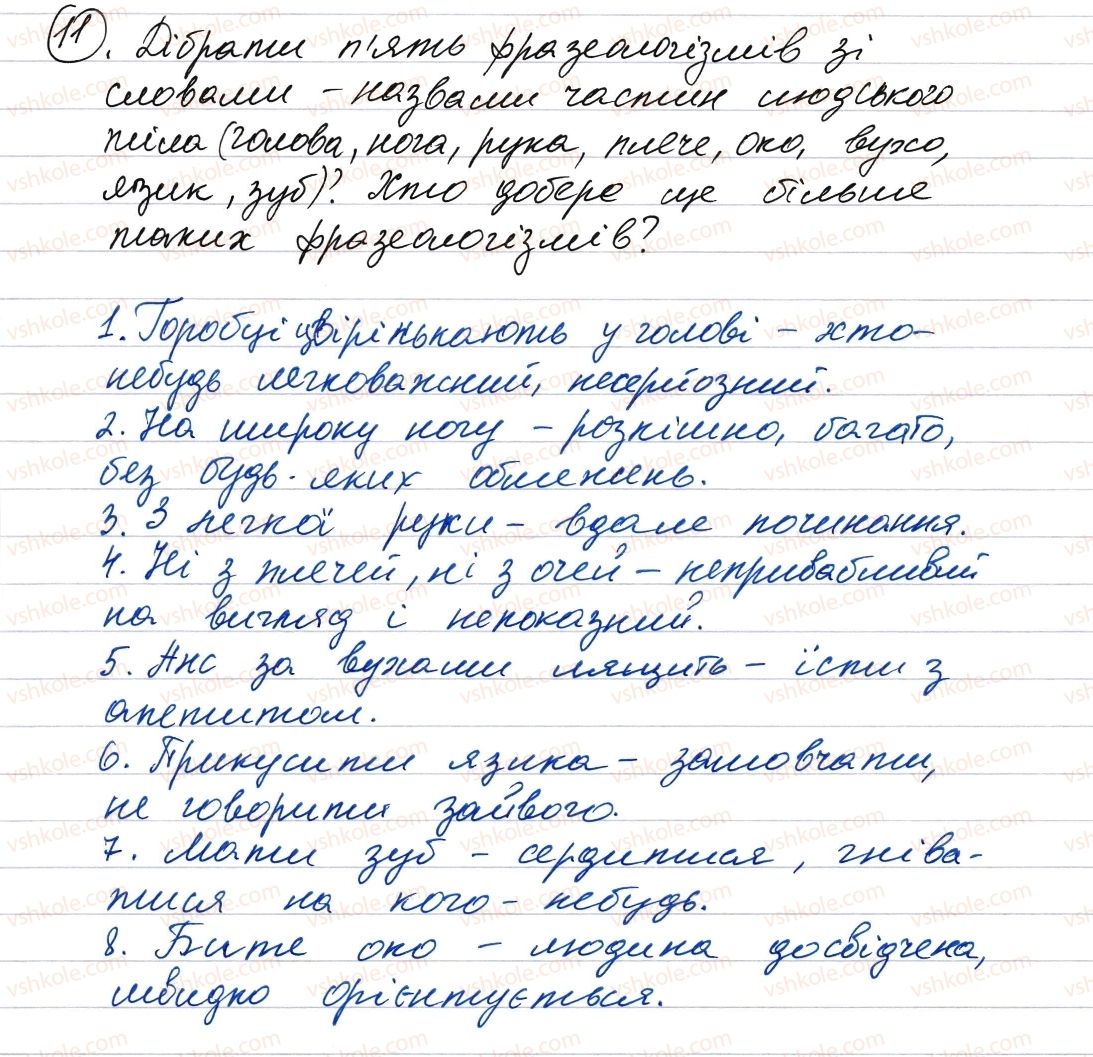 11. Дібрати п'ять фразеологізмів зі
словами – назвами частин людського
тіла (голова, нога, рука, плече, око, вухо,
язик, зуб)? Хто добере ще більше
таких фразеологізмів?
1. Горобці цвірінькають у голові – хто-
небудь легковажний, несерйозний.
2. На широку ногу – розкішно, багато,
без будь-яких обмежень.
3. З легкої руки – вдале починання.
4. Ні з плечей, ні з очей – непривабливий
на вигляд і непоказний.
5. Аж за вухами лящить – їсти з
апетитом.
6. Прикусити язика – замовчати,
не говорити зайвого.
7. Мати зуб – сердитися, гніва-
тися на кого-небудь.
8. Бите око – людина досвідчена,
швидко орієнтується.